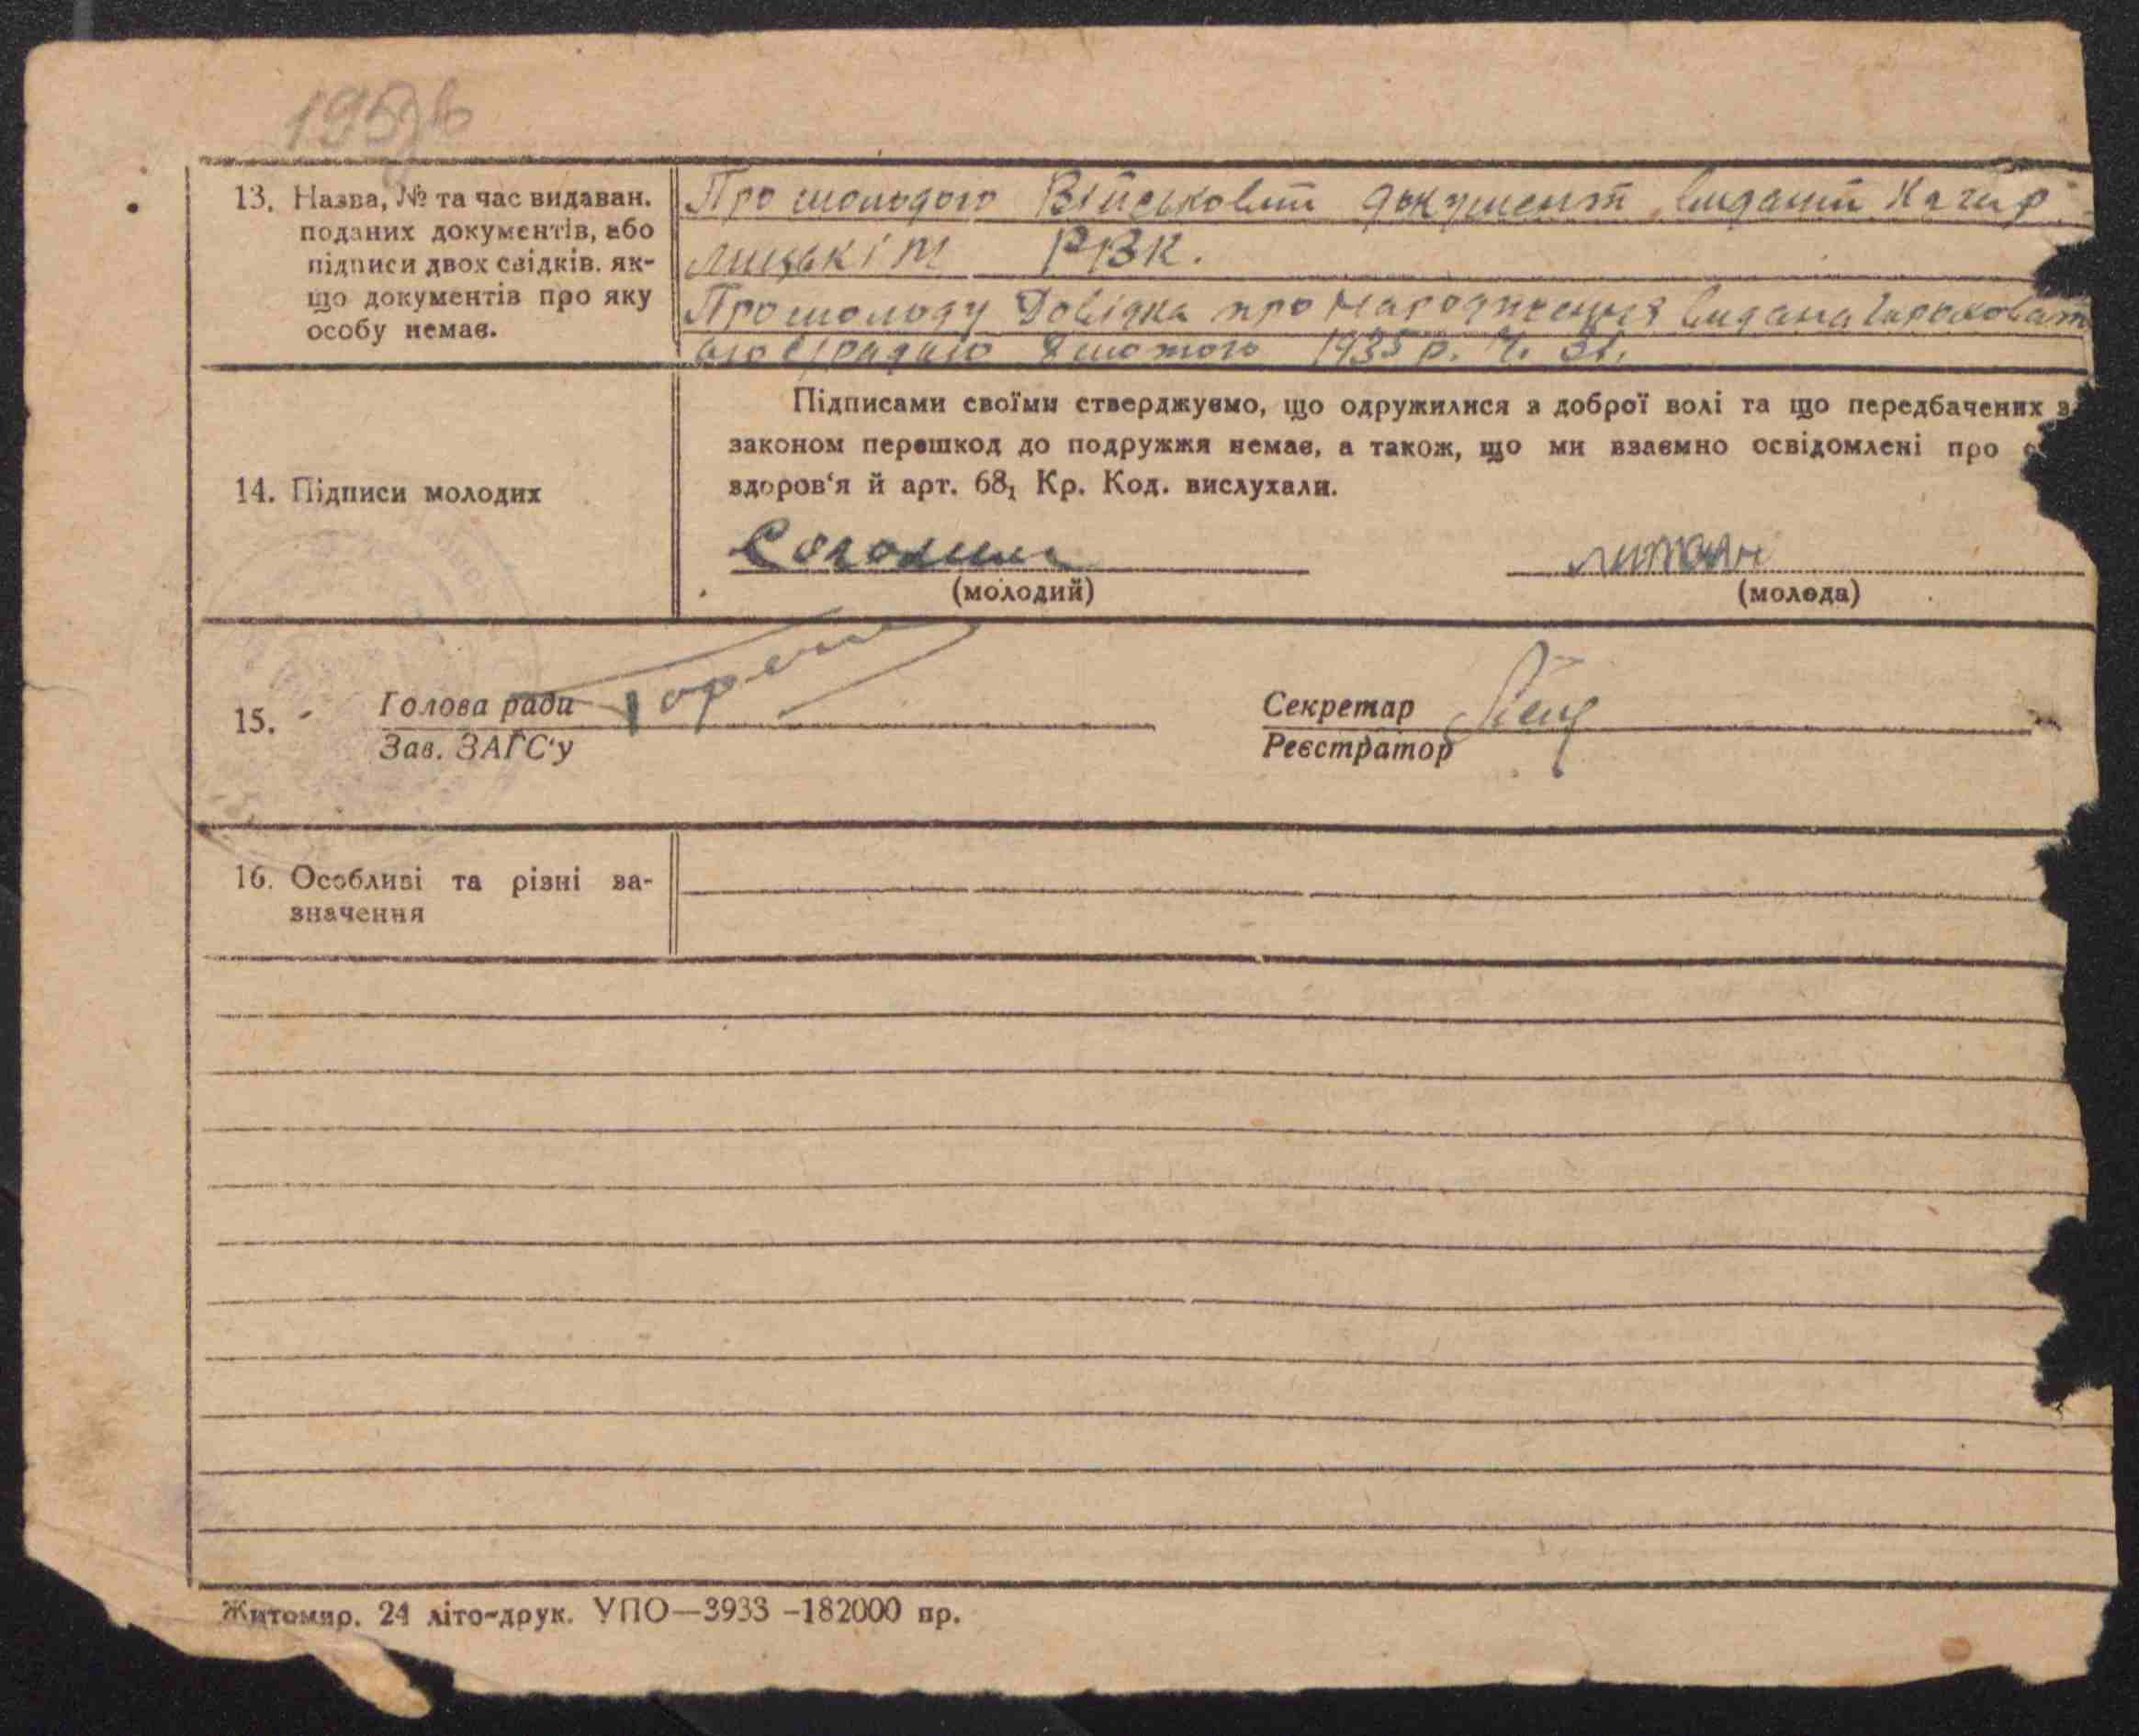 13. Назва, № та час видаван.
поданих документів, або
підписи двох свідків, як-
що документів про яку
особу немає.
Про молодого Військовий документ виданий Кагар
лицькім РВК.
Про молоду Довідка про народження видана
1935 р.
14. Підписи молодих
Підписами своїми стверджуємо, що одружилися з доброї волі та що передбачених з
законом перешкод до подружжя немає, а також, що ми взаємно освідомлені про с
здоров'я й арт. 68₁ Кр. Код. вислухали.
(молодий)
(молода)
15. Голова ради
Зав. ЗАГС'у
Секретар
Реєстратор
16. Особливі та різні за-
значення
Житомир. 24 літо-друк. УПО—3933 –182000 пр.